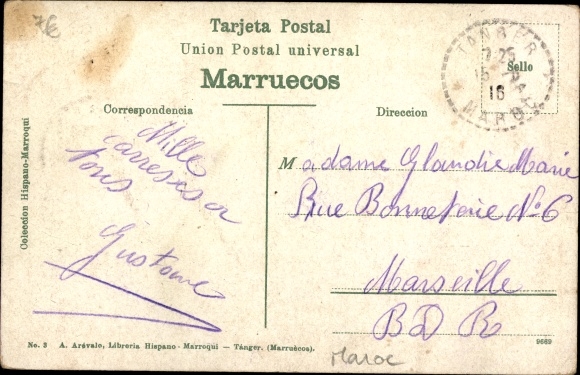 7€
Tarjeta Postal
Union Postal universal
Marruecos
TANGER
7-25
15
16
MAROC
Sello
Correspondencia
Direccion
Coleccion Hispano-Marroqui
Mille
carreses a
tous
Gustave
Madame Glandie Marie
Rue Bonneterie No 6
Marseille
BDR
No. 3 A. Arévalo, Libreria Hispano-Marroqui — Tánger. (Marruécos).
9669
Maroc